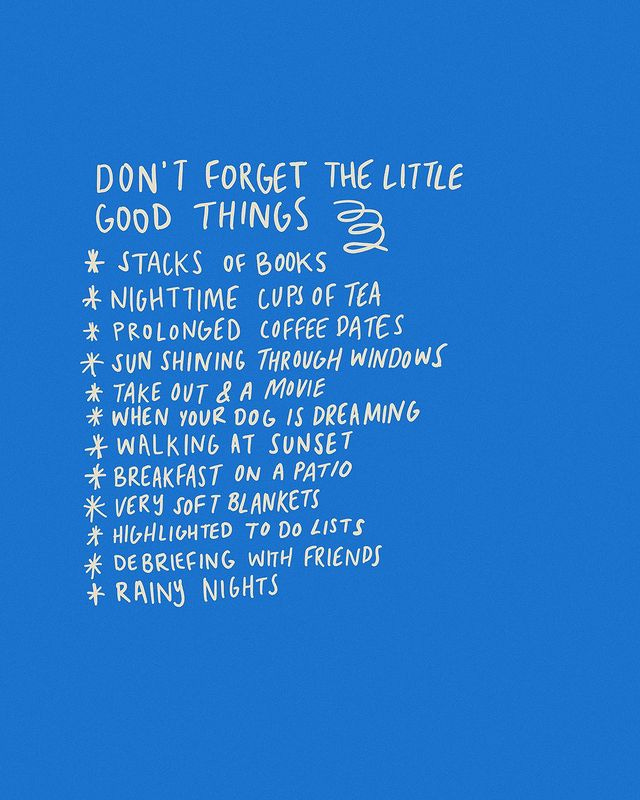 DON'T FORGET THE LITTLE
GOOD THINGS
* STACKS OF BOOKS
* NIGHTTIME CUPS OF TEA
* PROLONGED COFFEE DATES
* SUN SHINING THROUGH WINDOWS
* TAKE OUT & A MOVIE
* WHEN YOUR DOG IS DREAMING
* WALKING AT SUNSET
* BREAKFAST ON A PATIO
* VERY SOFT BLANKETS
* HIGHLIGHTED TO DO LISTS
* DEBRIEFING WITH FRIENDS
* RAINY NIGHTS